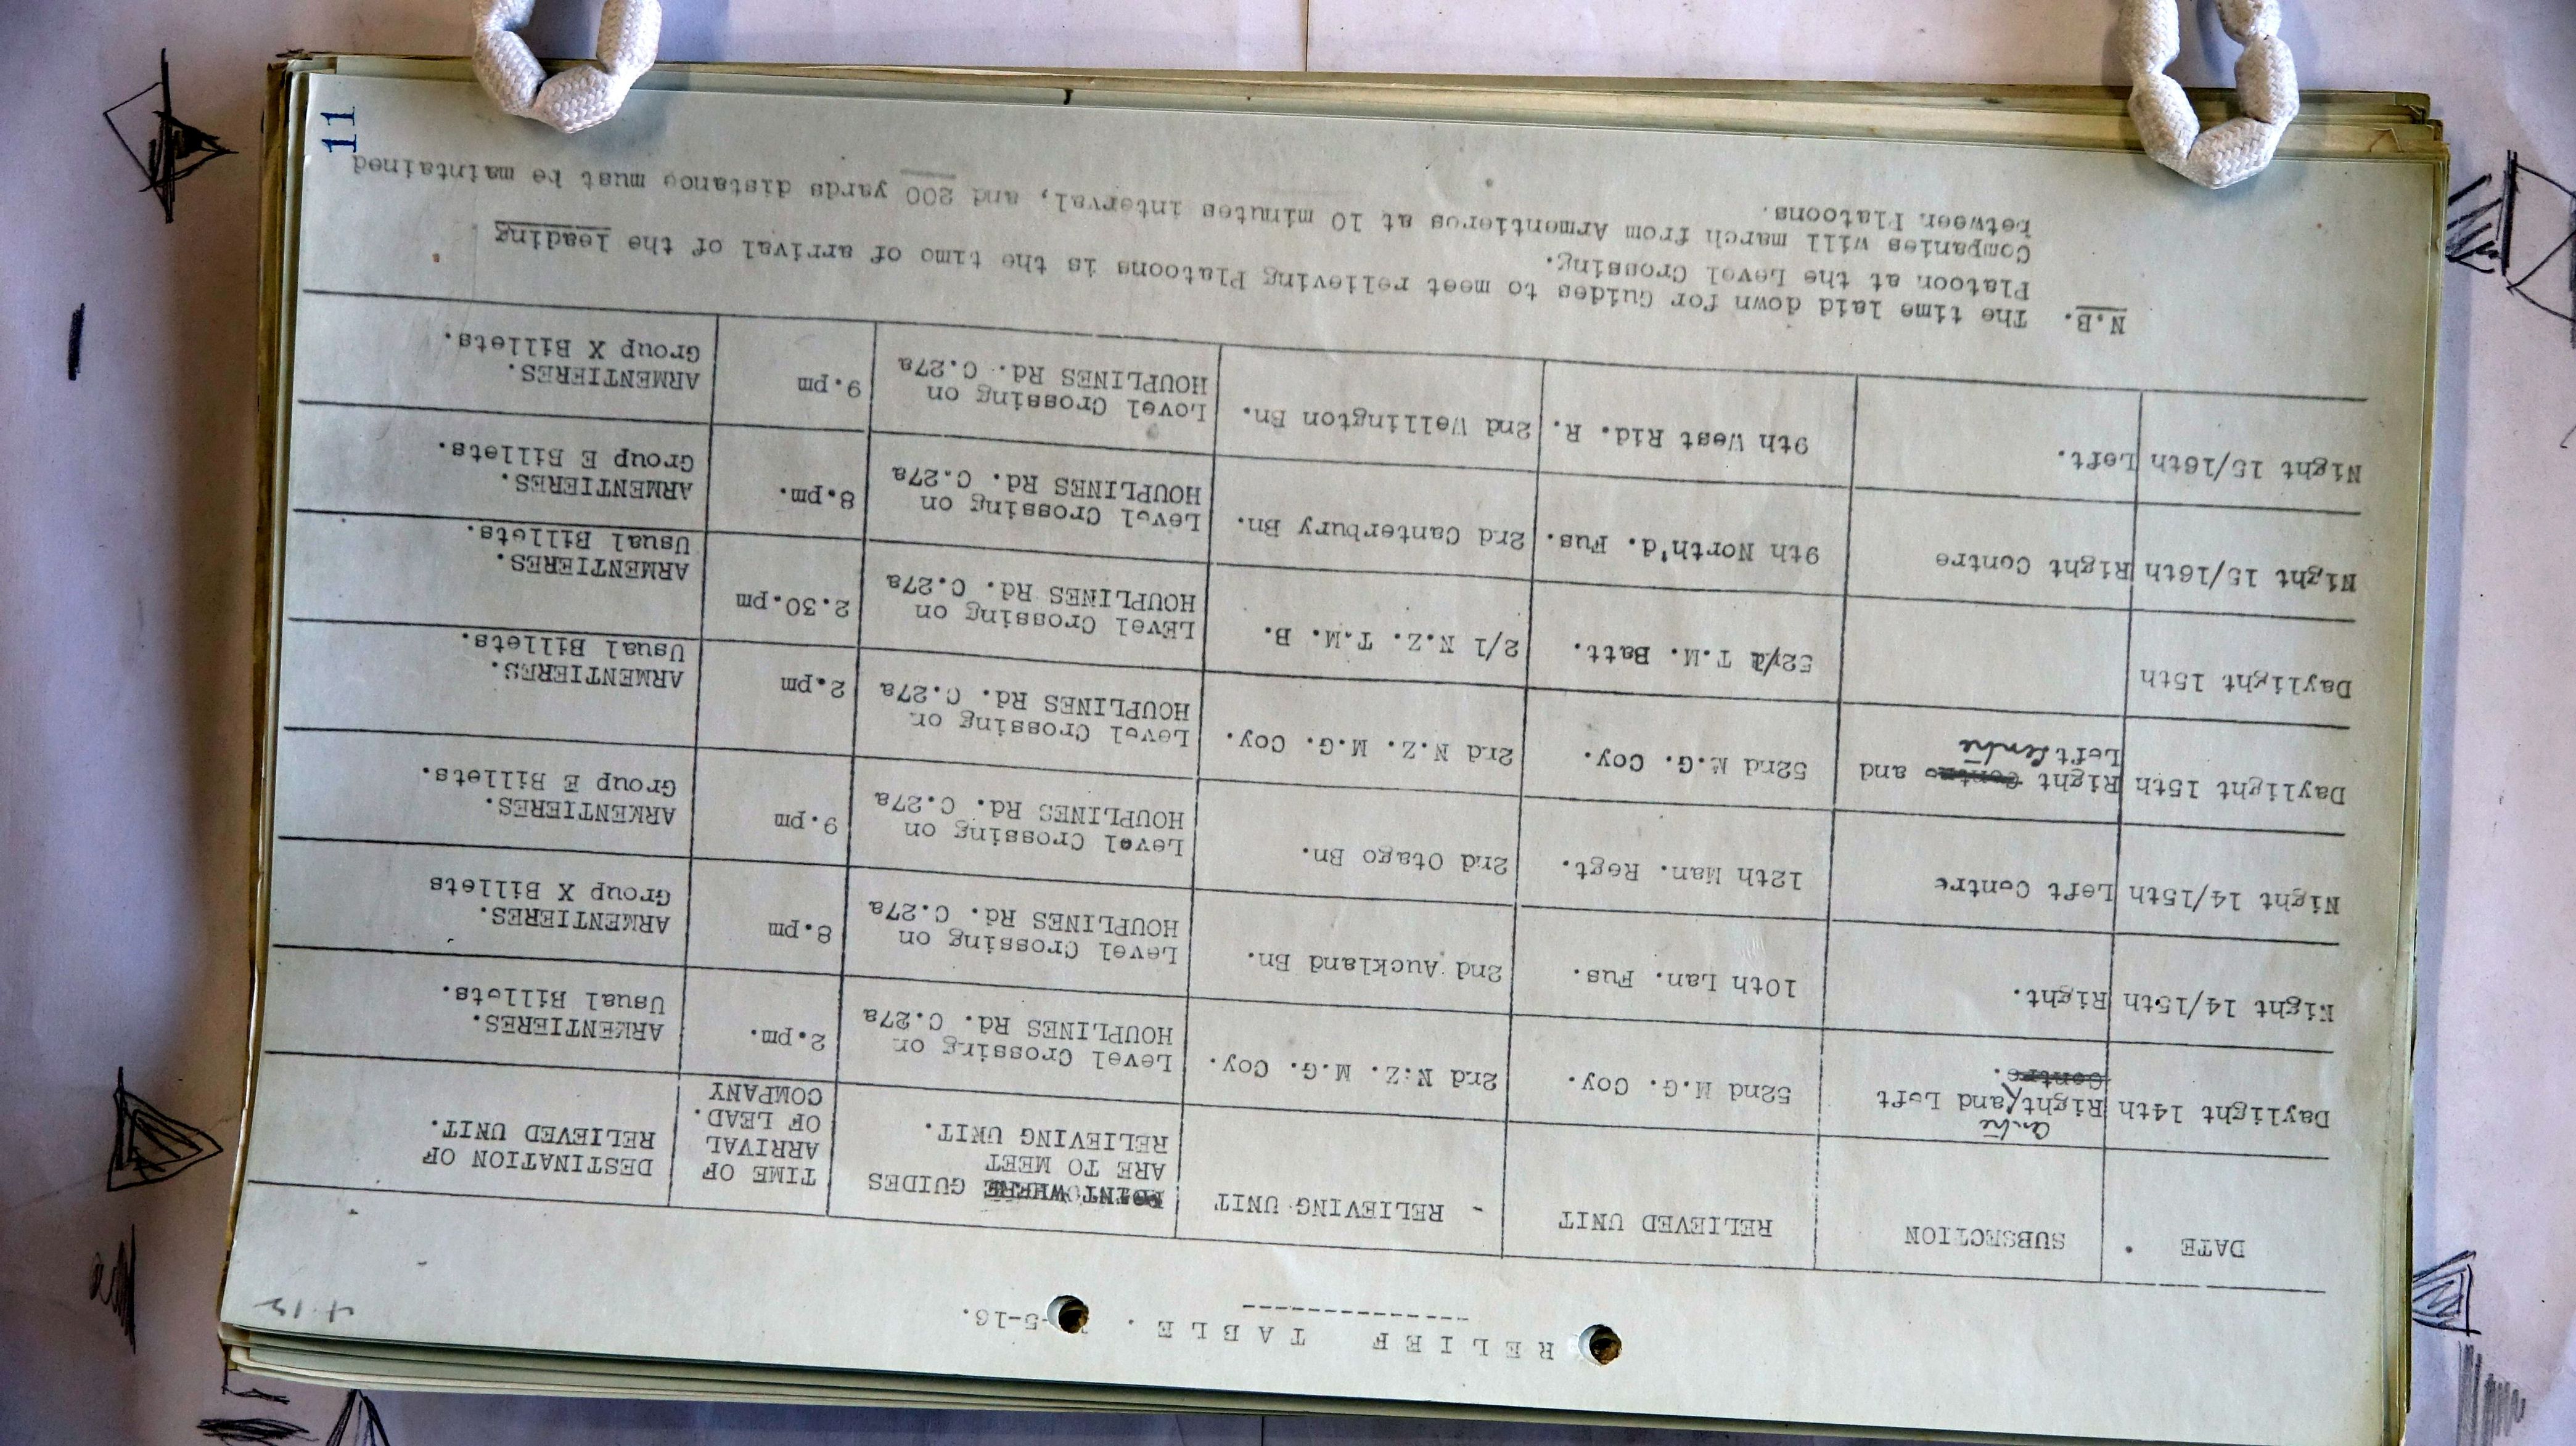 RELIEF TABLE. -5-16.
DATE SUBSECTION RELIEVED UNIT RELIEVING UNIT POINT WHERE GUIDES ARE TO MEET RELIEVING UNIT. TIME OF ARRIVAL OF LEAD. COMPANY DESTINATION OF RELIEVED UNIT.
Daylight 14th Right Centre and Left Centre. 52nd M.G. Coy. 2nd N.Z. M.G. Coy. Level Crossing on HOUPLINES Rd. C.27a 2.pm. ARMENTIERES. Usual Billets.
Night 14/15th Right. 10th Lan. Fus. 2nd Auckland Bn. Level Crossing on HOUPLINES Rd. C.27a 8.pm ARMENTIERES. Group X Billets
Night 14/15th Left Centre 12th Man. Regt. 2nd Otago Bn. Level Crossing on HOUPLINES Rd. C.27a 9.pm ARMENTIERES. Group E Billets.
Daylight 15th Right Centre and Left Centre 52nd M.G. Coy. 2nd N.Z. M.G. Coy. Level Crossing on HOUPLINES Rd. C.27a 2.pm ARMENTIERES. Usual Billets.
Daylight 15th T.M. Batt. 2/1 N.Z. T.M. B. LEvel Crossing on HOUPLINES Rd. C.27a 2.30.pm ARMENTIERES. Usual Billets.
Night 15/16th Right Centre 9th North'd. Fus. 2rd Canterbury Bn. Level Crossing on HOUPLINES Rd. C.27a 8.pm. ARMENTIERES. Group E Billets.
Night 15/16th Left. 9th West Rid. R. 2nd Wellington Bn. Level Crossing on HOUPLINES Rd. C.27a 9.pm ARMENTIERES. Group X Billets.
N.B. The time laid down for Guides to meet relieving Platoons is the time of arrival of the leading
Platoon at the Level Crossing.
Companies will march from Armentieres at 10 minutes interval, and 200 yards distance must be maintained
between Platoons.
11